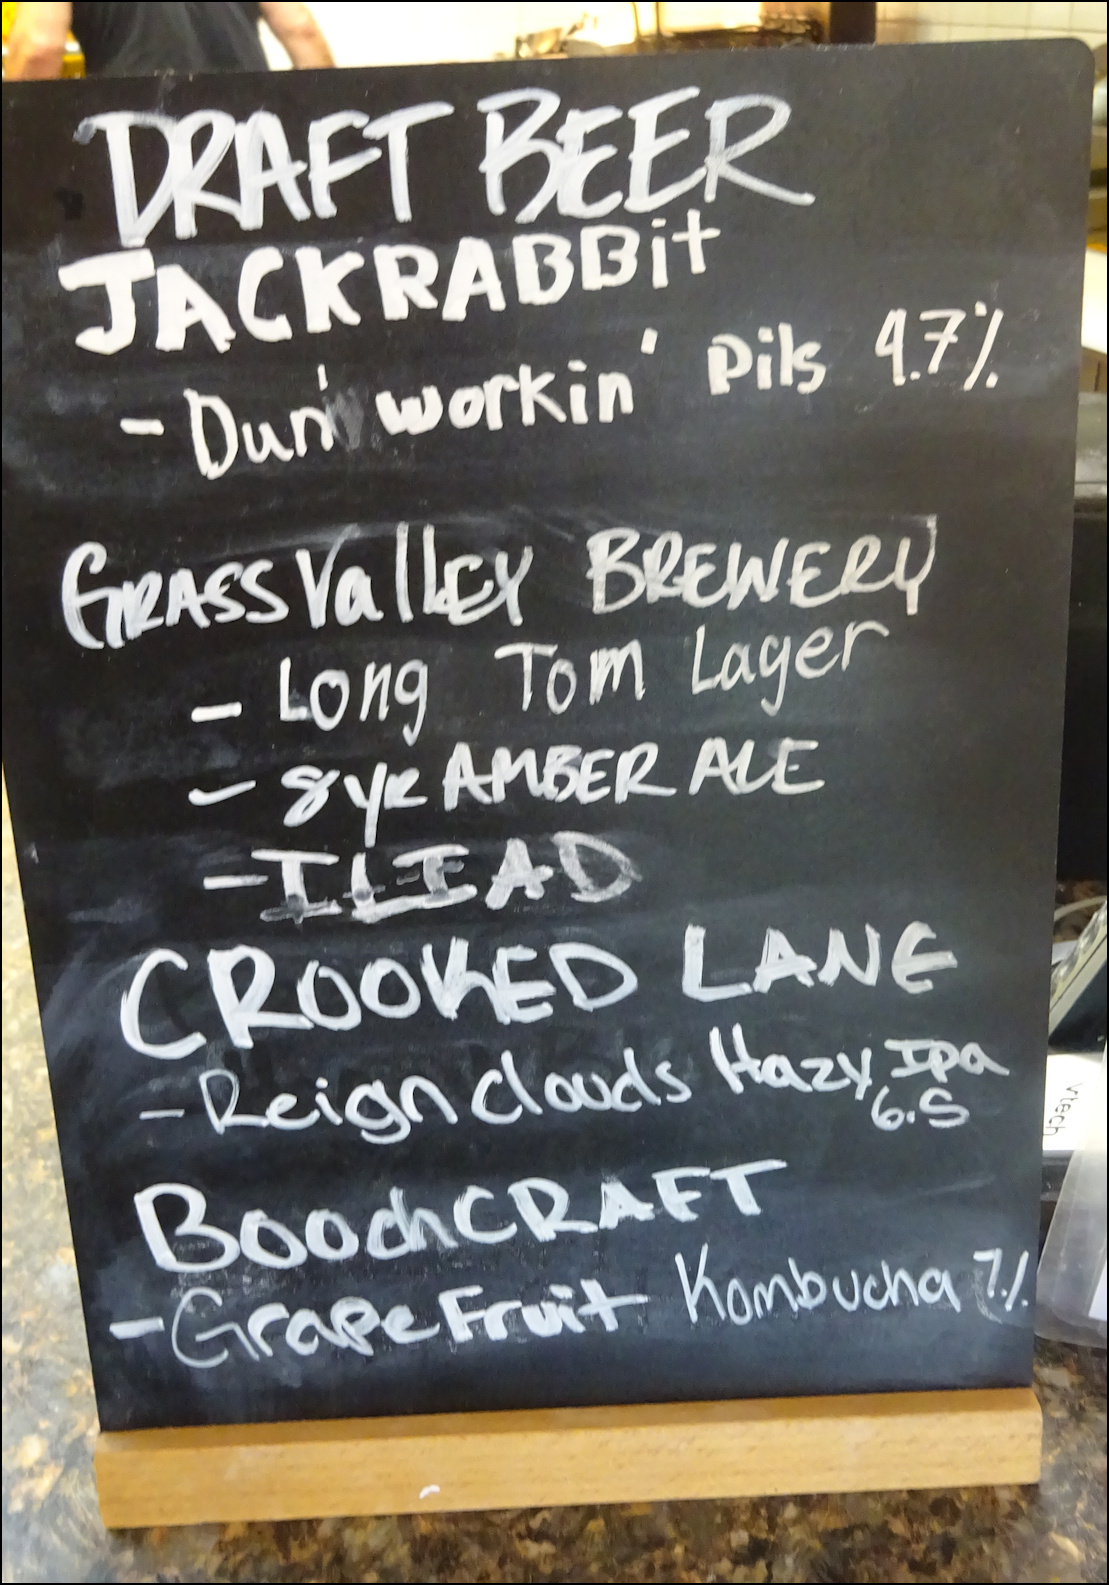 DRAFT BEER
JACKRABBit
- Dun' workin' Pils 4.7%
GRASS Valley BREWERY
- Long Tom Lager
- 8yr AMBER ALE
- ILIAD
CROOKED LANE
- Reign clouds Hazy Ipa
6.5
BoochCRAFT
- GrapeFruit Kombucha 7%
vtech